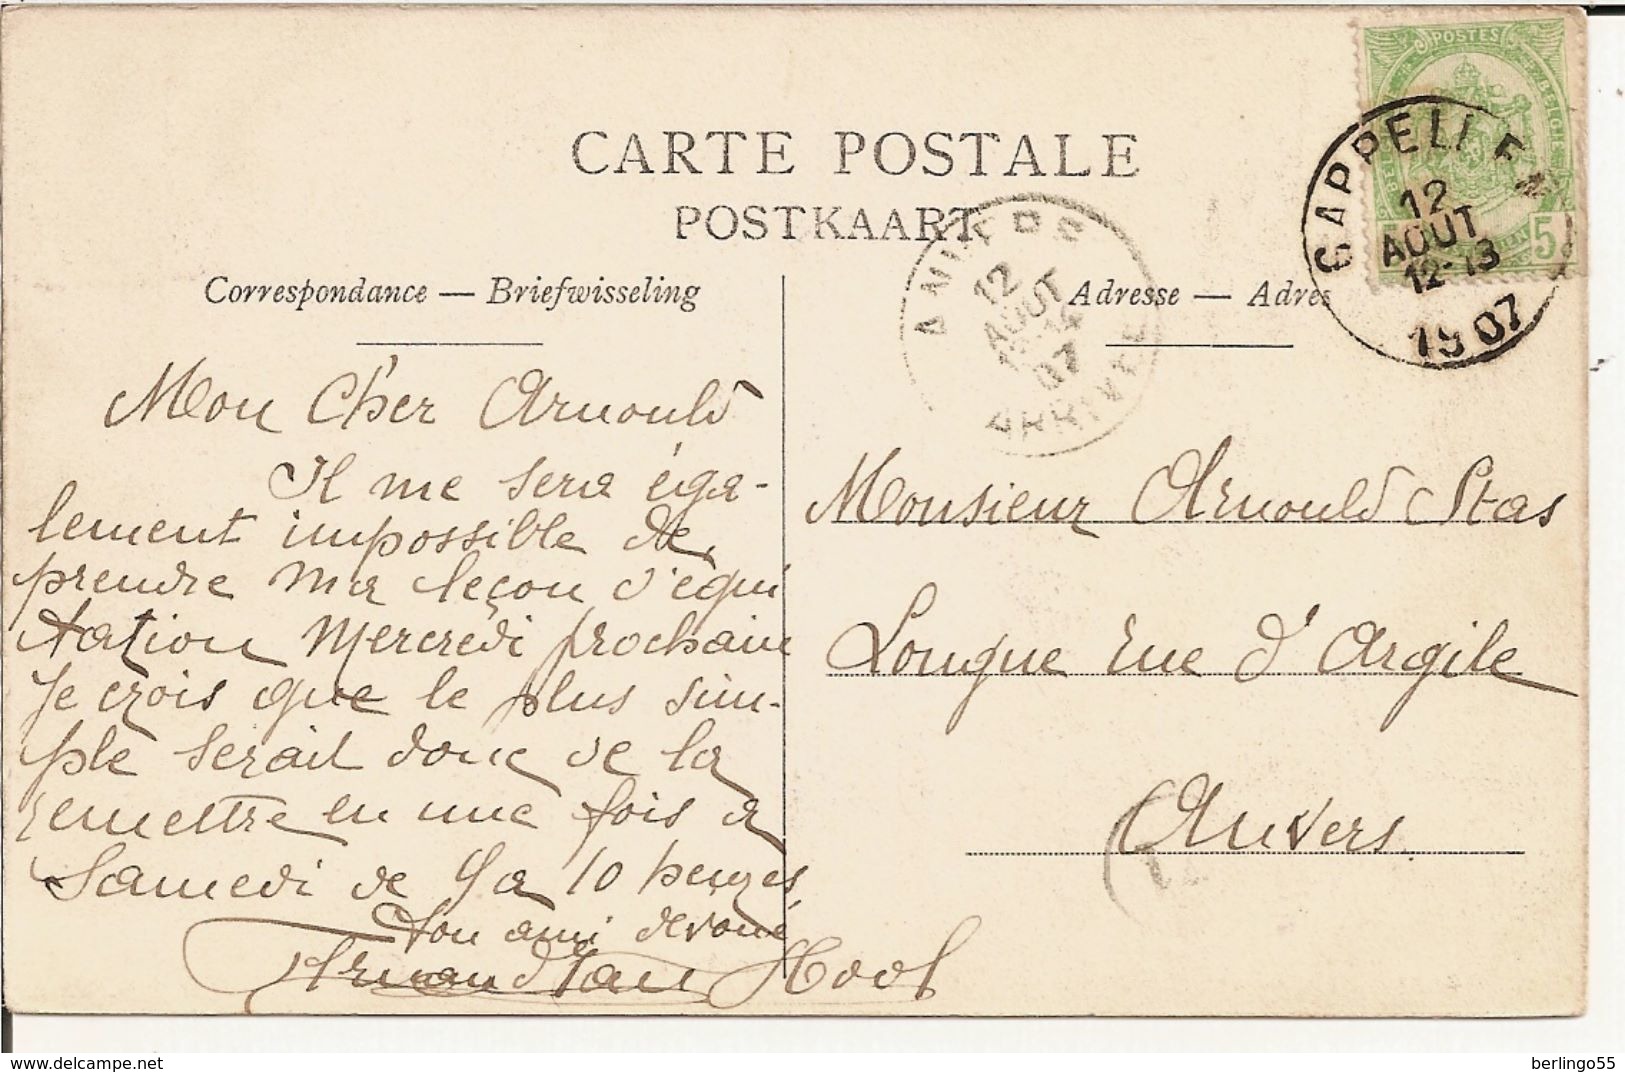 CARTE POSTALE
POSTKAART
Correspondance — Briefwisseling
Adresse — Adres
POSTES
5
CAPPELLEN
12
AOUT
12-13
1907
ANVERS
12
AOUT
07
ARRIVEE
Mon Cher Arnould
Il me sera éga-
lement impossible de
prendre ma leçon d'equi
tation Mercredi prochain
Je crois que le plus sim-
ple serait donc de la
remettre en une fois a
Samedi de 9 a 10 heures
Ton ami dévoué
Armand Van Hool
Monsieur Arnould Stas
Longue rue d'Argile
Anvers.
delcampe.net
berlingo55